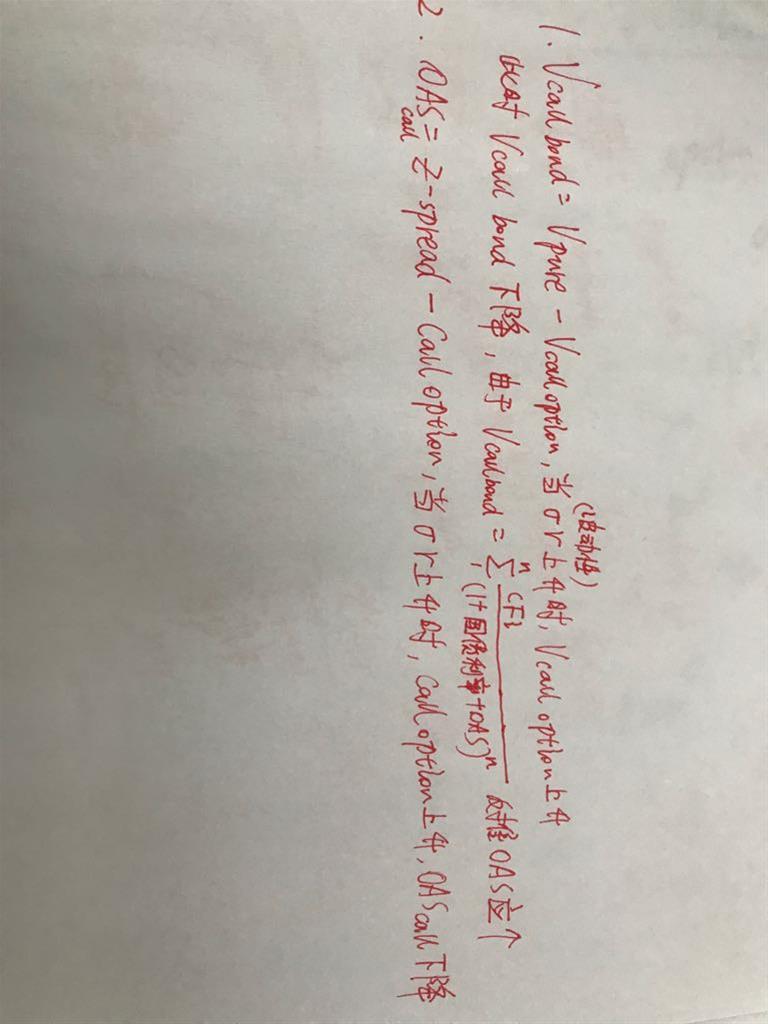 1. Vcall bond = Vpure - Vcall option, 当σr上升时, Vcall option上升
(波动性)
此时 Vcall bond 下降, 由于 Vcall bond = n∑1 CFi/(1+国债利率+OAS)^n 反推OAS应↑
2. OAS call = Z-spread - Call option, 当σr上升时, Call option上升, OAS call下降